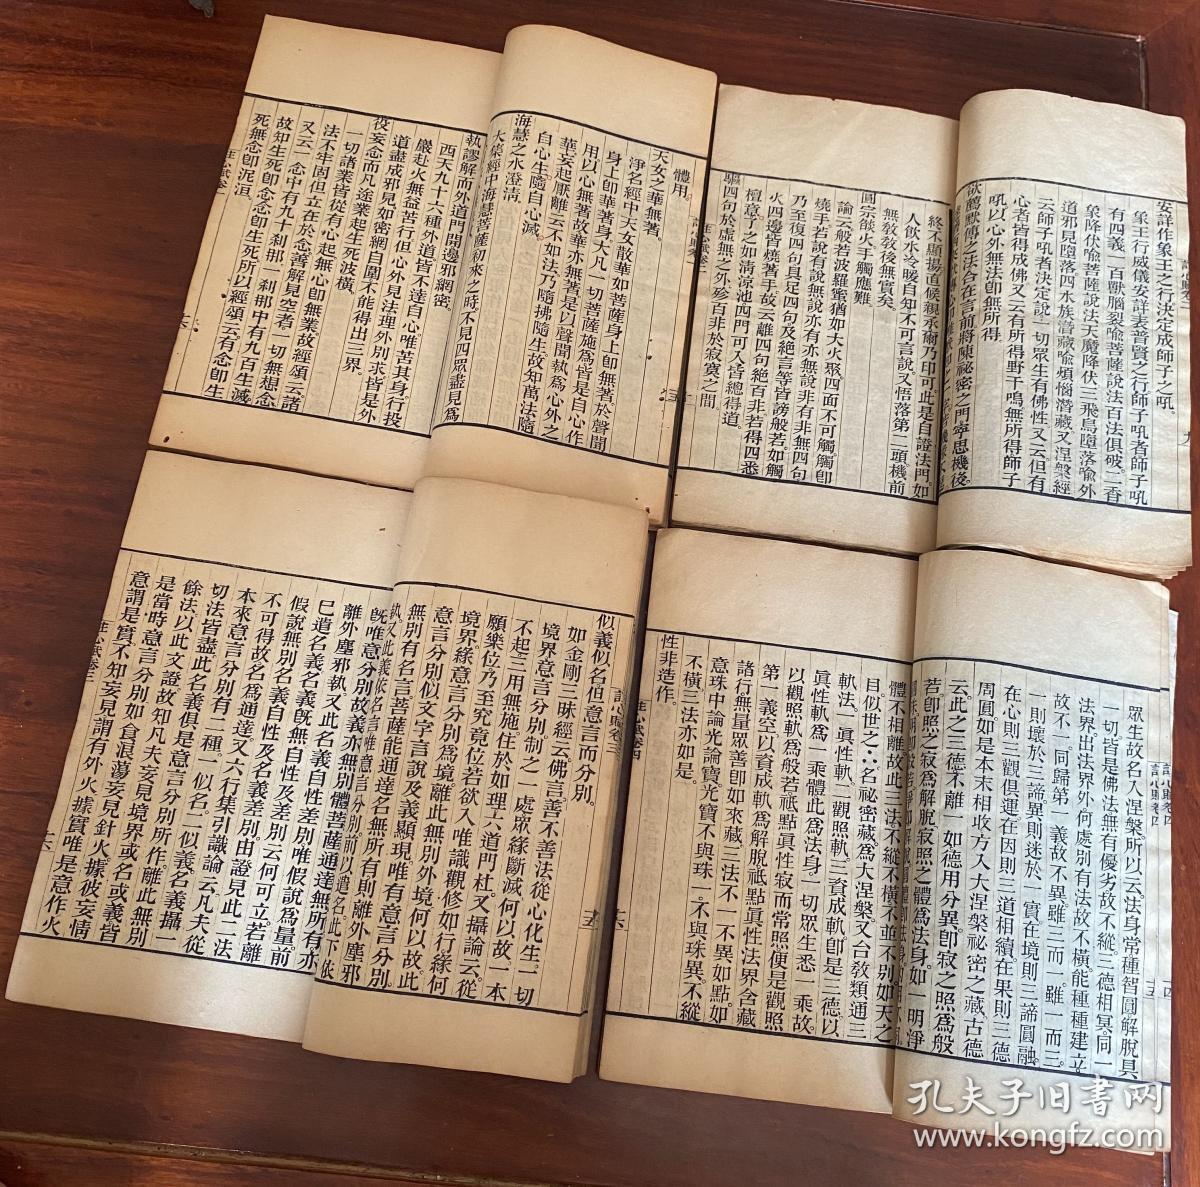 體用。
天女之華無著。
淨名經中天女散華如菩薩身上卽無著於聲聞
身上卽華著身大凡一切菩薩施爲皆是自心作
用以心無著故華亦無著是以聲聞執爲心外之
華妄起厭離云不如法乃隨拂隨生故知萬法隨
自心生隨自心滅。
海慧之水澄淸。
大集經中海慧菩薩初來之時不見四眾盡見爲
執謬解而外道門開邊邪網密。
西天九十六種外道皆不達自心唯苦其身行投
巖赴火無益苦行但心外見法理外別求皆是外
道盡成邪見如密網自圍不能得出三界。
役妄念而凡途業起生死波橫。
一切諸業皆從有心起無心卽無業故經頌云諸
法不牢固但立在於念善解見空者一切無想念
又云一念中有九十刹那一刹那中有九百生滅
故知生死卽念念卽生死所以經頌云有念卽生
死無念卽泥洹。
註心賦卷一
安詳作象王之行決定成師子之吼。
象王行威儀安詳表普賢之行師子吼者師子吼
有四義一百獸腦裂喩菩薩說法百法俱破二香
象降伏喩菩薩說法天魔降伏三飛鳥墮落喩外
道邪見墮落四水族潛藏喩煩惱潛藏又涅槃經
云師子吼者決定說一切眾生有佛性又云但有
心者皆得成佛又云有所得野干鳴無所得師子
吼以心外無法卽無所得
終不顯揚直候親承爾乃印可此是自證法門如
人飲水冷暖自知不可言說又悟落第二頭機前
無教教後無實矣。
圓宗燄火手觸應難。
論云般若波羅蜜猶如大火聚四面不可觸觸卽
燒手若說有說無說亦有亦無說非有非無四句
乃至復四句具足四句及絕言等皆謗般若如觸
火四邊皆燒著手故云離四句絕百非若得四悉
檀意了之如淸涼池四門可入皆總得道。
驅四句於虛無之外殄百非於寂寞之間
註心賦卷二
似義似名但意言而分別。
如金剛三昧經云佛言善不善法從心化生一切
境界意言分別制之一處眾緣斷滅何以故一本
不起三用無施住於如理六道門杜又攝論云從
願樂位乃至究竟位若欲入唯識觀修如行緣何
境界緣意言分別爲境離此無別外境何以故此
意言分別似文字言說及義顯現唯有意言分別。
無別有名言菩薩能通達名無所有則離外塵邪
執又此義依名言唯意言分別前以遣名此下依
旣唯意分別故義亦無別體菩薩通達無所有亦
離外塵邪執又此名義自性差別唯假說爲量前
已遣名義名義旣無自性及差別云何可立若離
假說無別名義自性及名義差別由證見此二法
不可得故名爲通達又六行集引識論云凡夫從
本來意言分別有二種一似名二似義名義攝一
切法皆盡此名義俱是意言分別所作離此無別
餘法以此文證故知凡夫妄見境界或名或義皆
是當時意言分別如食浪蕩妄見針火據彼妄情
意謂是實不知妄見謂有外火據實唯是意作火
註心賦卷三
眾生故名入涅槃所以云法身常種智圓解脫具
一切皆是佛法無有優劣故不縱三德相冥同一
法界出法界外何處別有法故不橫能種種建立
故不一同歸第一義故不異雖三而一雖一而三
一則壞於三諦異則迷於一實在境則三諦圓融
在心則三觀俱運在因則三道相續在果則三德
周圓如是本末相收方入大涅槃祕密之藏古德
云此之三德不離一如德用分異卽寂之照爲般
若卽照之寂爲解脫寂照之體爲法身如一明淨
體不相離故此三法不縱不橫不並不別如天之
目似世之∴名祕密藏爲大涅槃又台敎類通三
軌法一眞性軌二觀照軌三資成軌卽是三德以
眞性軌爲一乘體此爲法身一切眾生悉一乘故
以觀照軌爲般若祇點眞性寂而常照便是觀照
第一義空以資成軌爲解脫祇點眞性法界含藏
諸行無量眾善卽如來藏三法不一不異如點如
意珠中論光論寶光寶不與珠一不與珠異不縱
不橫三法亦如是。
性非造作。
註心賦卷四
孔夫子旧书网
www.kongfz.com